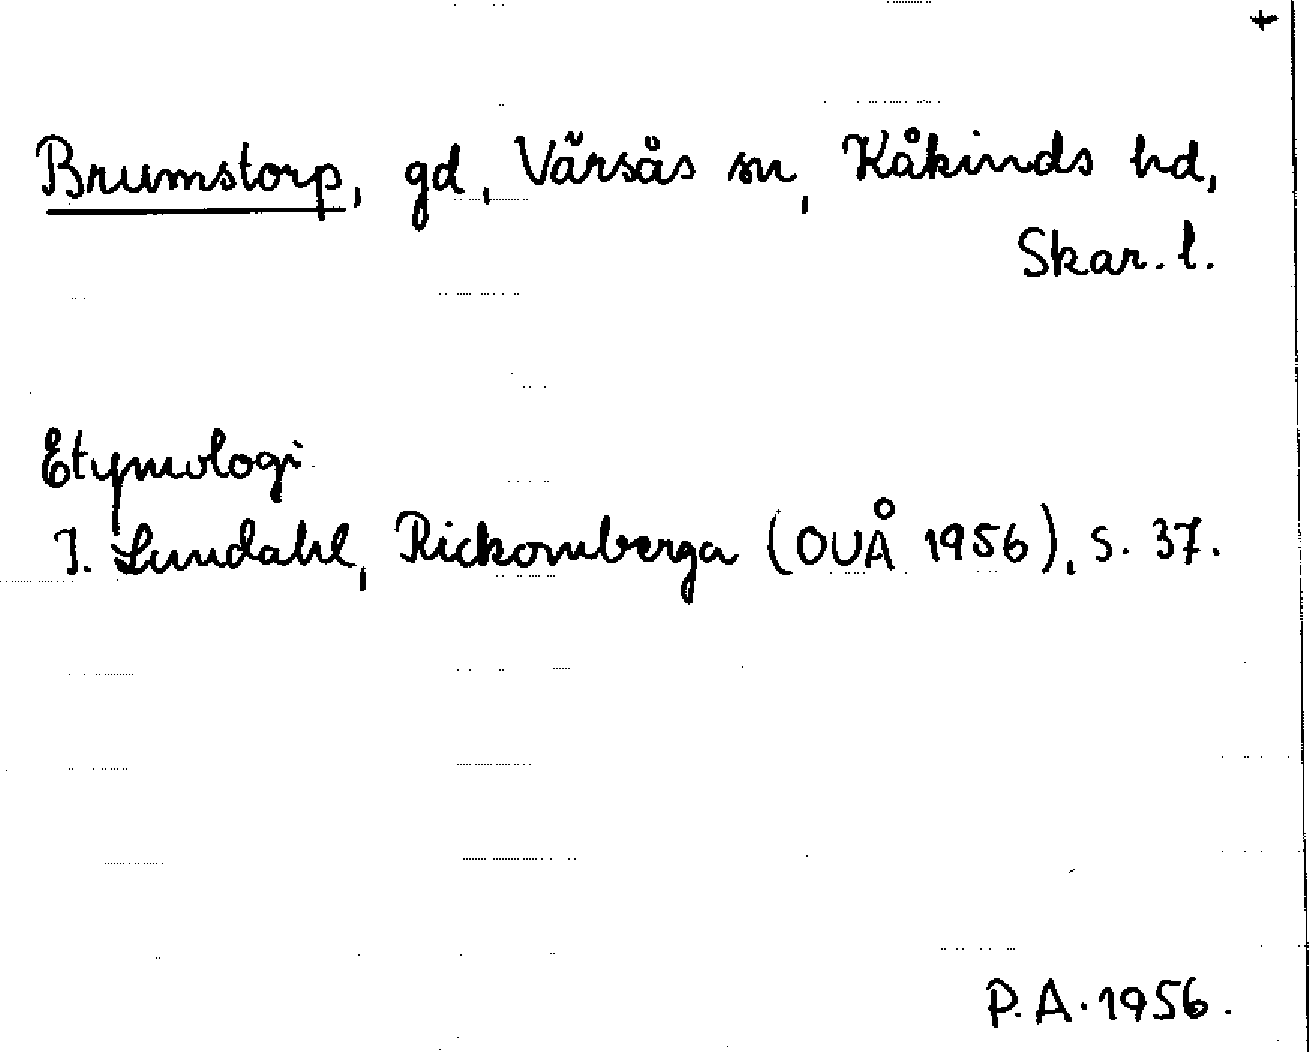 +
Brumstorp, gd, Värsås sn, Kåkinds hd,
Skar. l.
Etymologi
I. Lundahl, Rickomberga (OUÅ 1956), s. 37.
P. A. 1956.